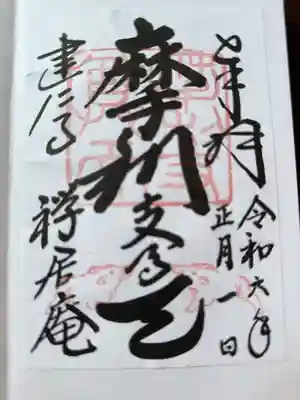 奉拝
令和六年
正月一日
摩利支尊天
建仁寺
禅居庵